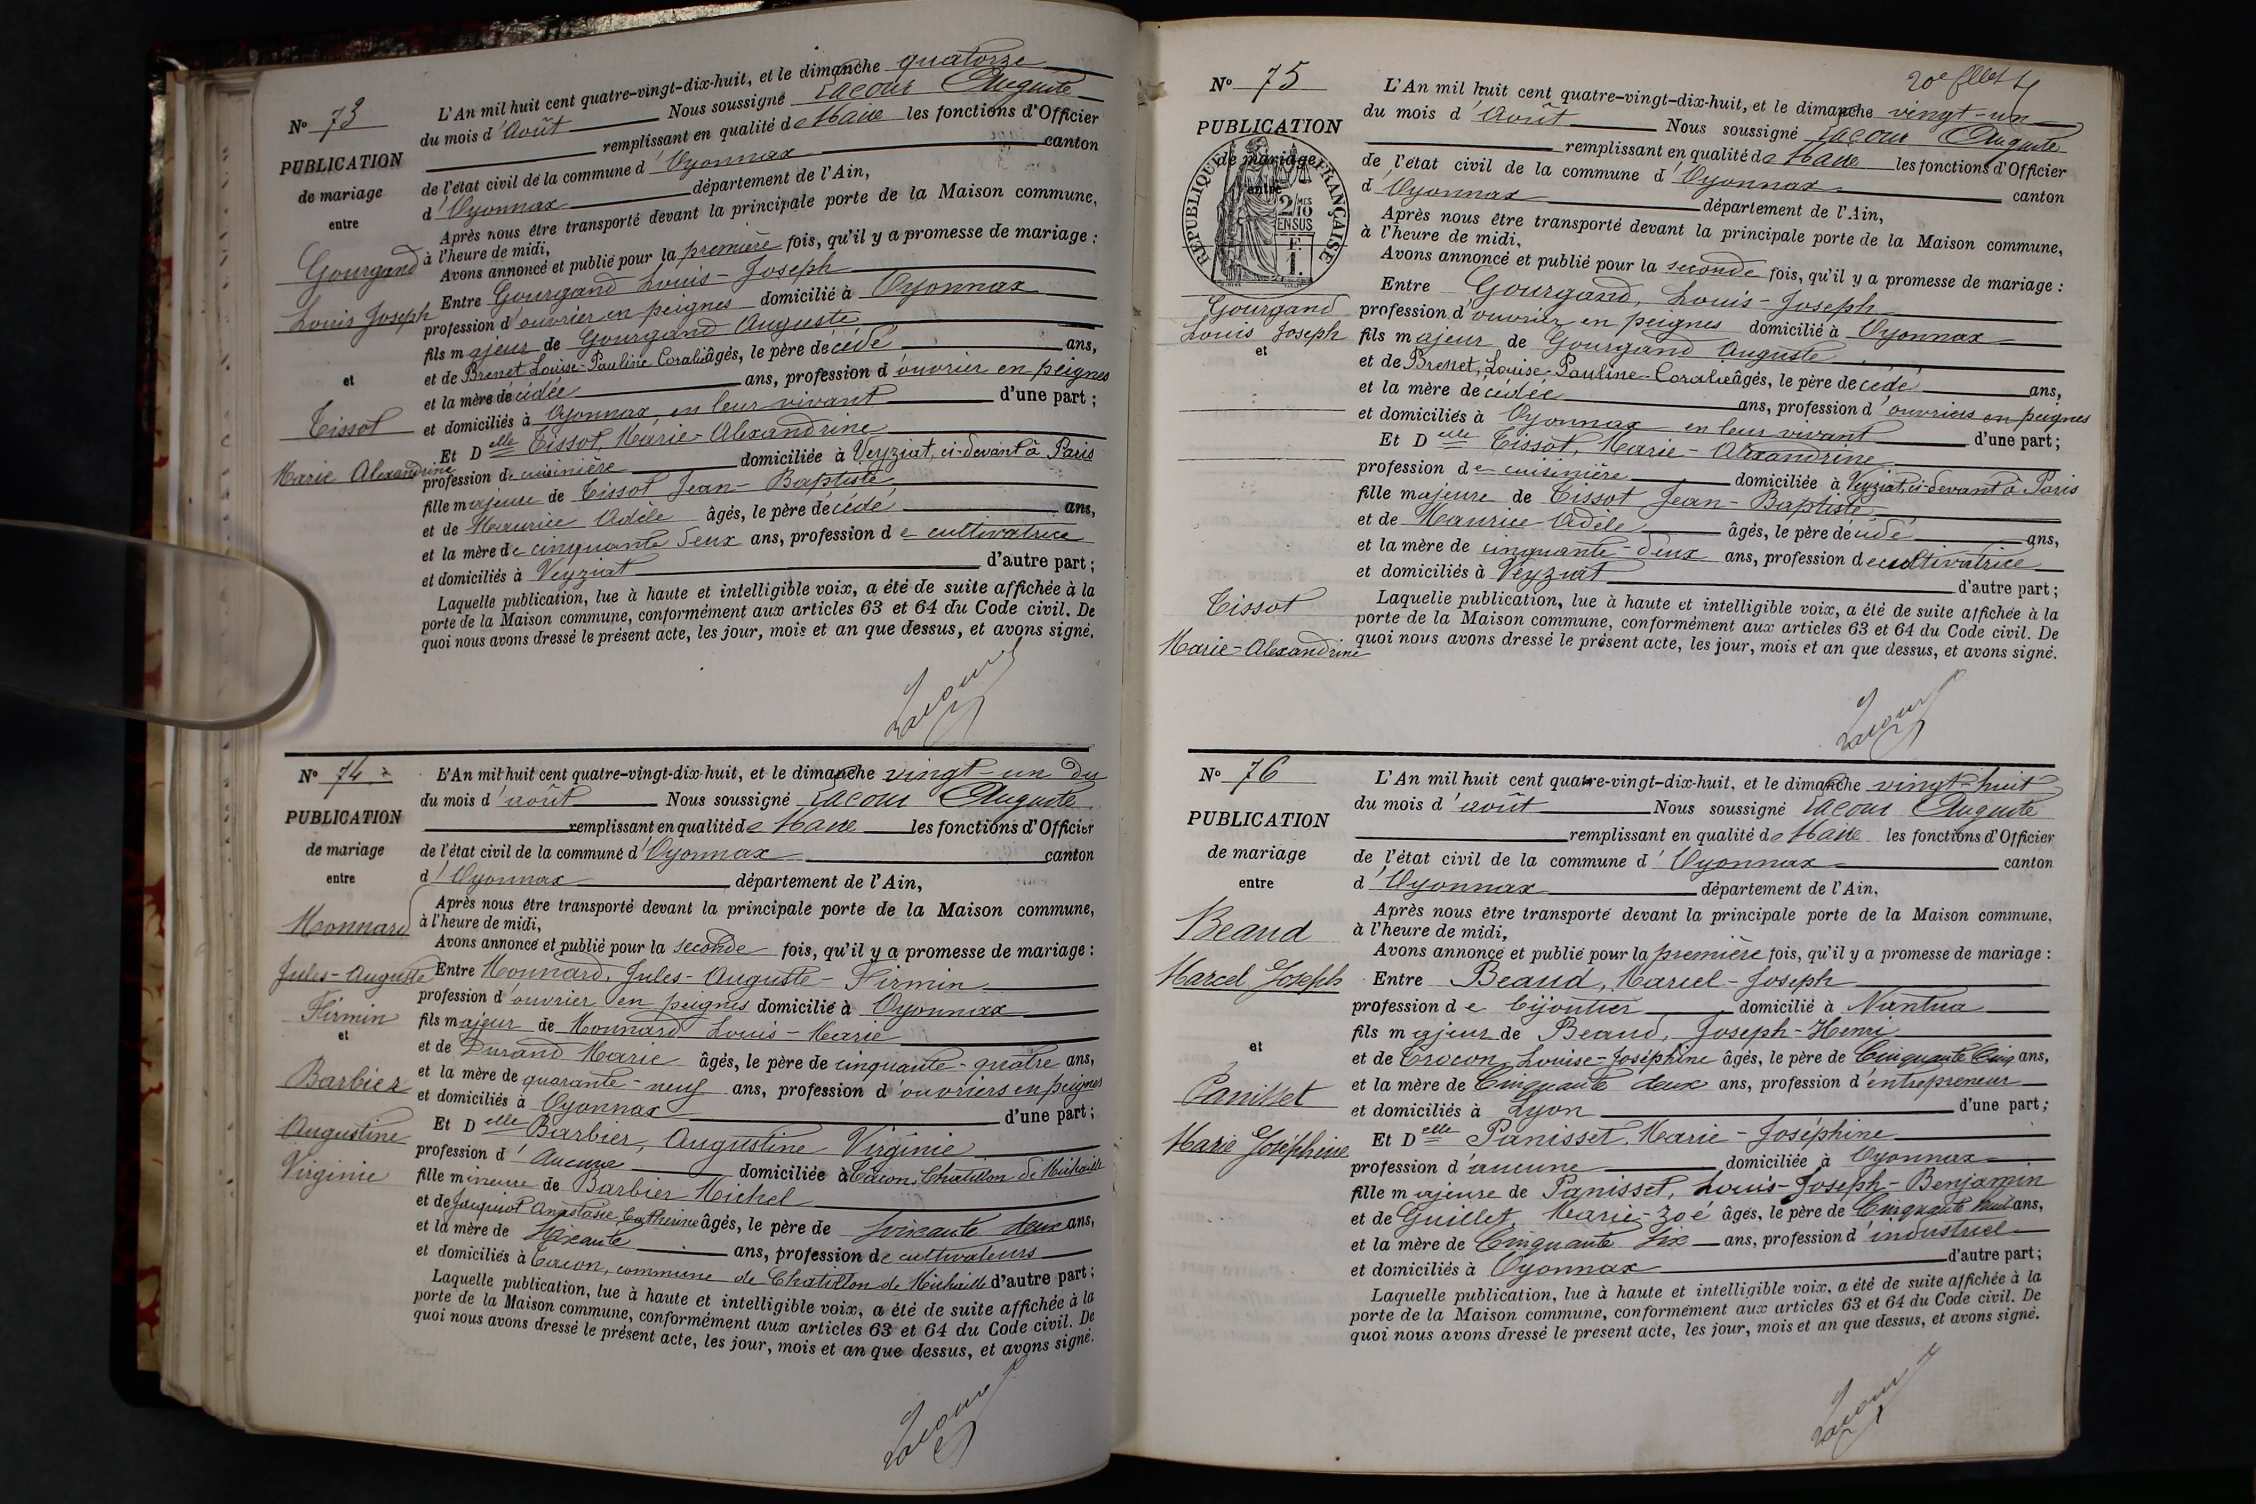 N° 73
PUBLICATION
de mariage
entre
Gourgand
Louis Joseph
et
Tissot
Marie Alexandrine
L'An mil huit cent quatre-vingt-dix-huit, et le dimanche quatorze
du mois d'Août Nous soussigné Lacour Auguste
remplissant en qualité de Maire les fonctions d'Officier
de l'état civil de la commune d'Oyonnax canton
d'Oyonnax département de l'Ain,
Après nous être transporté devant la principale porte de la Maison commune,
à l'heure de midi,
Avons annoncé et publié pour la première fois, qu'il y a promesse de mariage :
Entre Gourgand Louis-Joseph
profession d'ouvrier en peignes domicilié à Oyonnax
fils majeur de Gourgand Auguste
et de Brenet Louise-Pauline Coralie âgés, le père décédé ans,
et la mère décédée ans, profession d'ouvrier en peignes
et domiciliés à Oyonnax en leur vivant d'une part ;
Et Delle Tissot, Marie-Alexandrine
profession de cuisinière domiciliée à Veyziat, ci-devant à Paris
fille majeure de Tissot Jean-Baptiste
et de Maurice Adèle âgés, le père décédé ans,
et la mère de cinquante deux ans, profession de cultivatrice
et domiciliés à Veyziat d'autre part ;
Laquelle publication, lue à haute et intelligible voix, a été de suite affichée à la
porte de la Maison commune, conformément aux articles 63 et 64 du Code civil. De
quoi nous avons dressé le présent acte, les jour, mois et an que dessus, et avons signé.
Lacour
N° 74
PUBLICATION
de mariage
entre
Monnard
Jules-Auguste
Firmin
et
Barbier
Augustine
Virginie
L'An mil huit cent quatre-vingt-dix-huit, et le dimanche vingt-un du
du mois d'août Nous soussigné Lacour Auguste
remplissant en qualité de Maire les fonctions d'Officier
de l'état civil de la commune d'Oyonnax canton
d'Oyonnax département de l'Ain,
Après nous être transporté devant la principale porte de la Maison commune,
à l'heure de midi,
Avons annoncé et publié pour la seconde fois, qu'il y a promesse de mariage :
Entre Monnard, Jules-Auguste-Firmin
profession d'ouvrier en peignes domicilié à Oyonnax
fils majeur de Monnard Louis-Marie
et de Durand Marie âgés, le père de cinquante-quatre ans,
et la mère de quarante-neuf ans, profession d'ouvriers en peignes
et domiciliés à Oyonnax d'une part ;
Et Delle Barbier, Augustine Virginie
profession d'aucune domiciliée à Tacon, Chatillon de Michaille
fille mineure de Barbier Michel
et de Jacquiot Anastasie Catherine âgés, le père de soixante deux ans,
et la mère de soixante ans, profession de cultivateurs
et domiciliés à Tacon, commune de Chatillon de Michaille d'autre part ;
Laquelle publication, lue à haute et intelligible voix, a été de suite affichée à la
porte de la Maison commune, conformément aux articles 63 et 64 du Code civil. De
quoi nous avons dressé le présent acte, les jour, mois et an que dessus, et avons signé.
Lacour
20e
N° 75
PUBLICATION
de mariage
entre
RÉPUBLIQUE FRANÇAISE
2/10 EN SUS
Gourgand
Louis Joseph
et
Tissot
Marie-Alexandrine
L'An mil huit cent quatre-vingt-dix-huit, et le dimanche vingt-un
du mois d'Août Nous soussigné Lacour Auguste
remplissant en qualité de Maire les fonctions d'Officier
de l'état civil de la commune d'Oyonnax canton
d'Oyonnax département de l'Ain,
Après nous être transporté devant la principale porte de la Maison commune,
à l'heure de midi,
Avons annoncé et publié pour la seconde fois, qu'il y a promesse de mariage :
Entre Gourgand, Louis-Joseph
profession d'ouvrier en peignes domicilié à Oyonnax
fils majeur de Gourgand Auguste
et de Brenet, Louise-Pauline-Coralie âgés, le père décédé ans,
et la mère décédée ans, profession d'ouvriers en peignes
et domiciliés à Oyonnax en leur vivant d'une part ;
Et Delle Tissot, Marie-Alexandrine
profession de cuisinière domiciliée à Veyziat, ci-devant à Paris
fille majeure de Tissot Jean-Baptiste
et de Maurice Adèle âgés, le père décédé ans,
et la mère de cinquante-deux ans, profession de cultivatrice
et domiciliés à Veyziat d'autre part ;
Laquelle publication, lue à haute et intelligible voix, a été de suite affichée à la
porte de la Maison commune, conformément aux articles 63 et 64 du Code civil. De
quoi nous avons dressé le présent acte, les jour, mois et an que dessus, et avons signé.
Lacour
N° 76
PUBLICATION
de mariage
entre
Beaud
Marcel Joseph
et
Panisset
Marie Joséphine
L'An mil huit cent quatre-vingt-dix-huit, et le dimanche vingt-huit
du mois d'août Nous soussigné Lacour Auguste
remplissant en qualité de Maire les fonctions d'Officier
de l'état civil de la commune d'Oyonnax canton
d'Oyonnax département de l'Ain.
Après nous être transporté devant la principale porte de la Maison commune,
à l'heure de midi,
Avons annoncé et publié pour la première fois, qu'il y a promesse de mariage :
Entre Beaud, Marcel-Joseph
profession de bijoutier domicilié à Nantua
fils majeur de Beaud, Joseph-Henri
et de Crocon, Louise-Joséphine âgés, le père de Cinquante Cinq ans,
et la mère de Cinquante deux ans, profession d'entrepreneur
et domiciliés à Lyon d'une part ;
Et Delle Panisset, Marie-Joséphine
profession d'aucune domiciliée à Oyonnax
fille majeure de Panisset, Louis-Joseph-Benjamin
et de Guillet, Marie-Zoé âgés, le père de Cinquante huit ans,
et la mère de Cinquante six ans, profession d'industriel
et domiciliés à Oyonnax d'autre part ;
Laquelle publication, lue à haute et intelligible voix, a été de suite affichée à la
porte de la Maison commune, conformément aux articles 63 et 64 du Code civil. De
quoi nous avons dressé le présent acte, les jour, mois et an que dessus, et avons signé.
Lacour